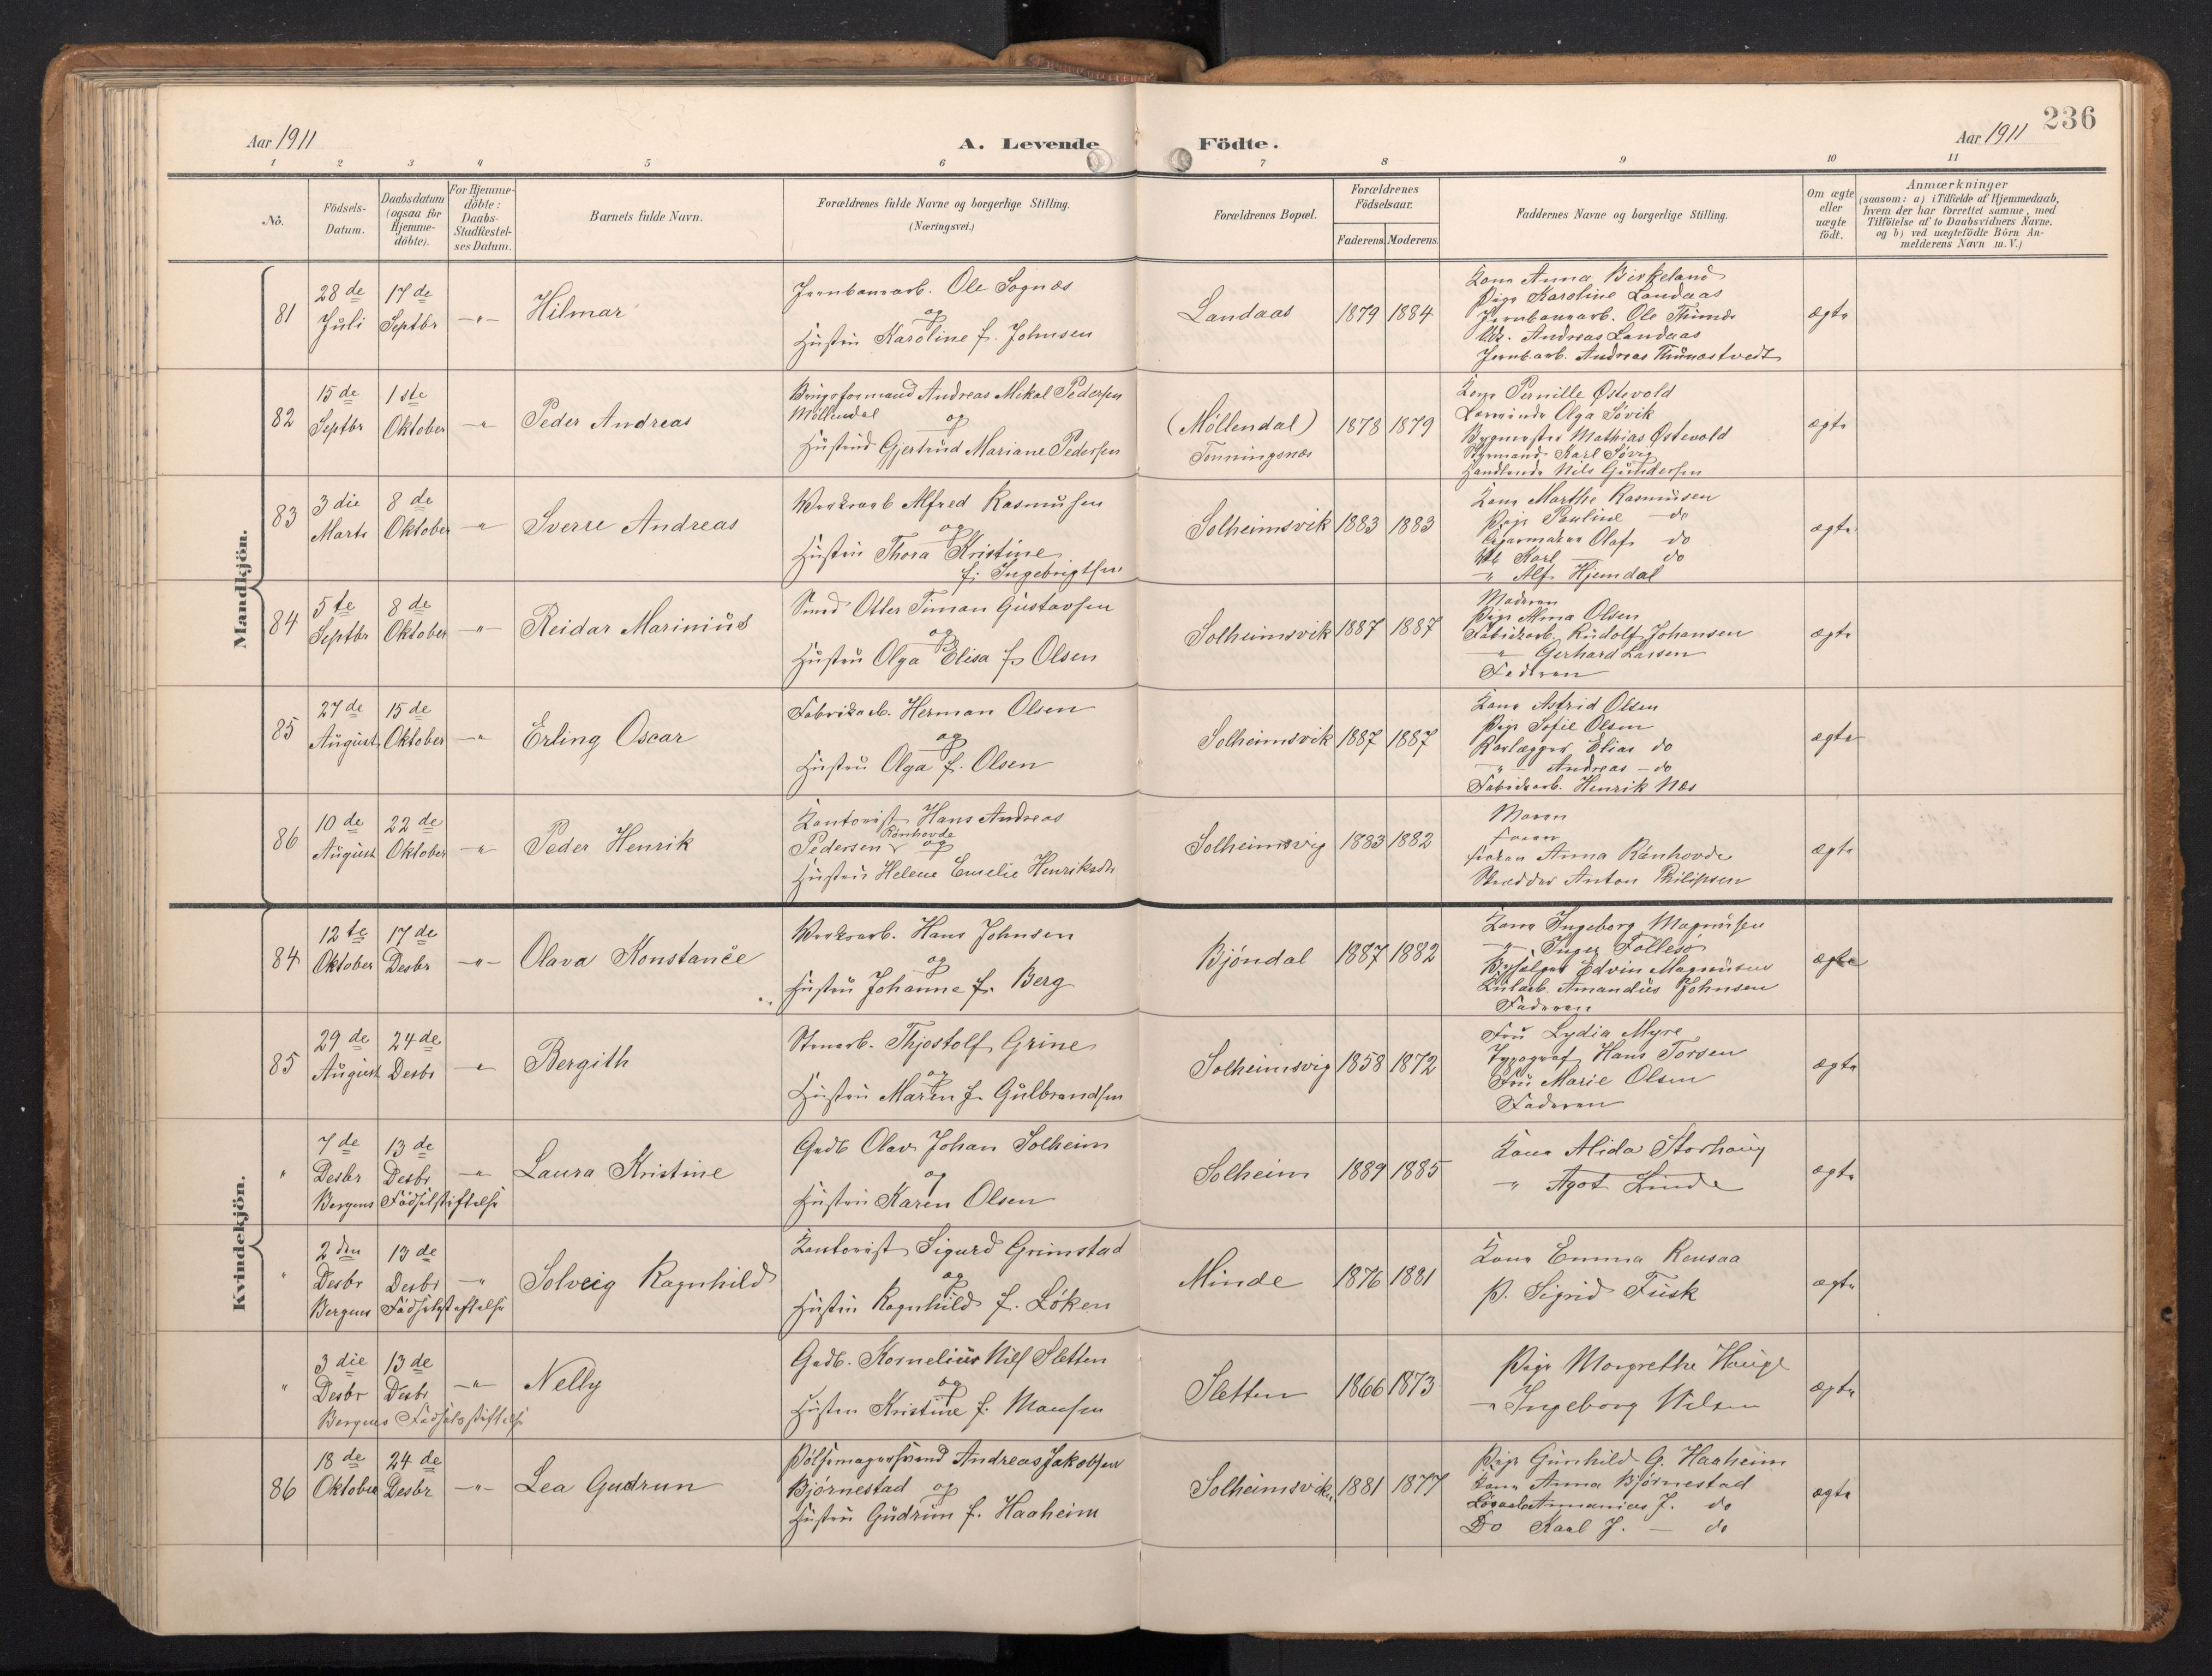 236
Aar 1911
A. Levende Födte.
Aar 1911
1 2 3 4 5 6 7 8 9 10 11
No.
Födsels-Datum.
Daabsdatum (ogsaa for Hjemme-döbte).
For Hjemme-döbte: Daabs-Stadfæstel-ses Datum.
Barnets fulde Navn.
Forældrenes fulde Navne og borgerlige Stilling. (Næringsvei.)
Forældrenes Bopæl.
Forældrenes Födselsaar.
Faderens. Moderens.
Faddernes Navne og borgerlige Stilling.
Om ægte eller uægte födt.
Anmærkninger
(saasom: a) i Tilfælde af Hjemmedaab,
hvem der har forrettet samme, med
Tilföielse af to Daabsvidners Navne.
og b) ved uægtefödte Börn An-
melderens Navn m. V.)
Mandkjön.
81 28de Juli 17de Septbr -"- Hilmar
Jernbanearb. Ole Sognæs
og
Hustru Karoline f. Johnsen
Landaas 1879 1884
Kone Anna Birkeland
Pige Karoline Landaas
Jernbanearb. Ole Thunes
Andreas Landaas
Jernb.arb. Andreas Thunestvedt
ægte
82 15de Septbr 1ste Oktober -"- Peder Andreas
Andreas Mikal Pedersen
Möllendal
og
Hustru Gjertrud Mariane Pedersen
(Möllendal)
1878 1879
Kone Pernille Østevold
Lærerinde Olga Søvik
Bygmester Mathias Østevold
Styrmand Karl Søvig
Handlende Nils Gundersen
ægte
83 3die Marts 8de Oktober -"- Sverre Andreas
Verksarb Alfred Rasmussen
og
Hustru Thora Kristine
f. Ingebrigtsen
Solheimsvik 1883 1883
Kone Marthe Rasmusen
Pige Pauline - do
Olaf do
Karl do
" Alf Hjemdal
ægte
84 5te Septbr 8de Oktober -"- Reidar Marinius
Smed Otter Timan Gustavsen
og
Hustru Olga Elisa f. Olsen
Solheimsvik 1887 1887
Moderen
Pige Anna Olsen
Fabrikarb. Rudolf Johansen
-"- Gerhard Larsen
Faderen
ægte
85 27de August 15de Oktober -"- Erling Oscar
Fabrikarb. Herman Olsen
og
Hustru Olga f. Olsen
Solheimsvik 1887 1887
Kone Astrid Olsen
Pige Sofie Olsen
Rørlægger Elias do
-"- Andreas - do
Fabrikarb. Henrik Næs
ægte
86 10de August 22de Oktober -"- Peder Henrik
Kontorist Hans Andreas
Pedersen Rønhovde og
Hustru Helene Emelie Henriksdtr
Solheimsvig 1883 1882
Moren
Faren
Frøken Anna Rønhovde
Skrædder Anton Philipsen
ægte
Kvindekjön.
84 12te Oktober 17de Desbr -"- Olava Konstance
Verksarb. Hans Johnsen
og
Hustru Johanne f. Berg
Bjöndal 1887 1882
Kone Ingeborg Magnusen
-"- Inger Follesø
Edvin Magnusen
Amandus Johnsen
Faderen
ægte
85 29de August 24de Desbr -"- Bergith
Stenarb. Thjostolf Grine
og
Hustru Maren f. Gulbrandsen
Solheimsvig 1858 1872
Fru Lydia Myre
Typograf Hans Torsen
Fru Marie Olsen
Faderen
ægte
" 7de Desbr 13de Desbr -"- Laura Kristine
Bergens Födselsstiftelse
Gadb Olav Johan Solheim
og
Hustru Karen Olsen
Solheim 1889 1885
Kone Alida Storhaug
-"- Agot Linde
ægte
" 2den Desbr 13de Desbr -"- Solveig Ragnhild
Bergens Födselsstiftelse
Kontorist Sigurd Grimstad
og
Hustru Ragnhild f. Løken
Minde 1876 1881
Kone Emma Rensaa
P. Sigrid Fusk
ægte
" 3die Desbr 13de Desbr -"- Nelly
Bergens Födselsstiftelse
Gadb. Kornelius Nils Sletten
og
Hustru Kristine f. Monsen
Sletten 1866 1873
Pige Margrethe Hauge
-"- Ingeborg Nilsen
ægte
86 18de Oktober 24de Desbr -"- Lea Gudrun
Pølsemagersvend Andreas Jakobsen
Bjørnestad og
Hustru Gudrun f. Haaheim
Solheimsviken 1881 1877
Pige Gunhild G. Haaheim
Kone Anna Bjørnestad
Ananias J. do
Do Karl J. - do
ægte